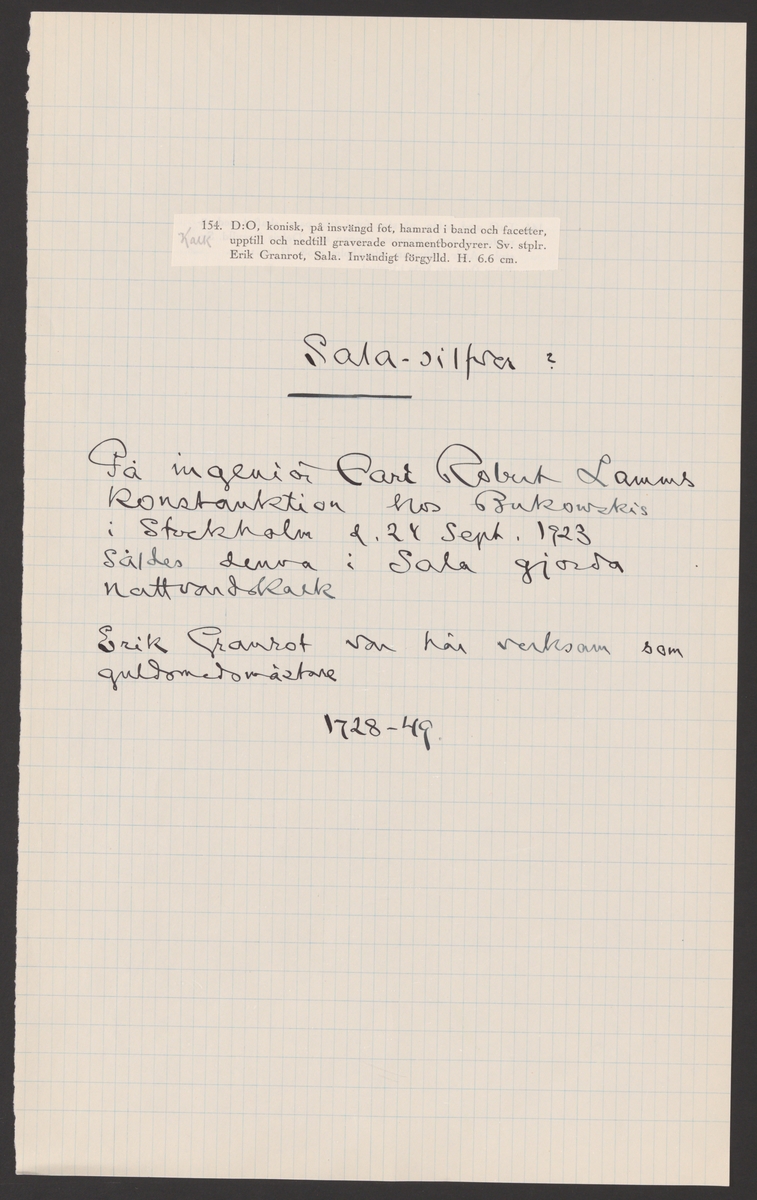 154. D:O, konisk, på insvängd fot, hamrad i band och facetter,
Kalk
upptill och nedtill graverade ornamentbordyrer. Sv. stplr.
Erik Granrot, Sala. Invändigt förgylld. H. 6.6 cm.
Sala-silfver ?
På ingeniör Carl Robert Lamms
Konstauktion hos Bukowskis
i Stockholm d. 24 Sept. 1923
Såldes denna i Sala gjorda
nattvardskalk
Erik Granrot var här verksam som
guldsmedsmästare
1728-49.